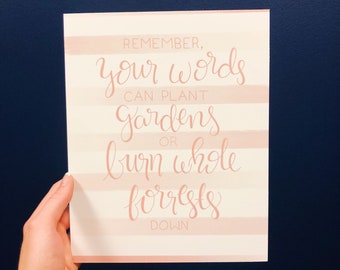 REMEMBER,
your words
CAN PLANT
gardens
OR
burn whole
forrests
DOWN